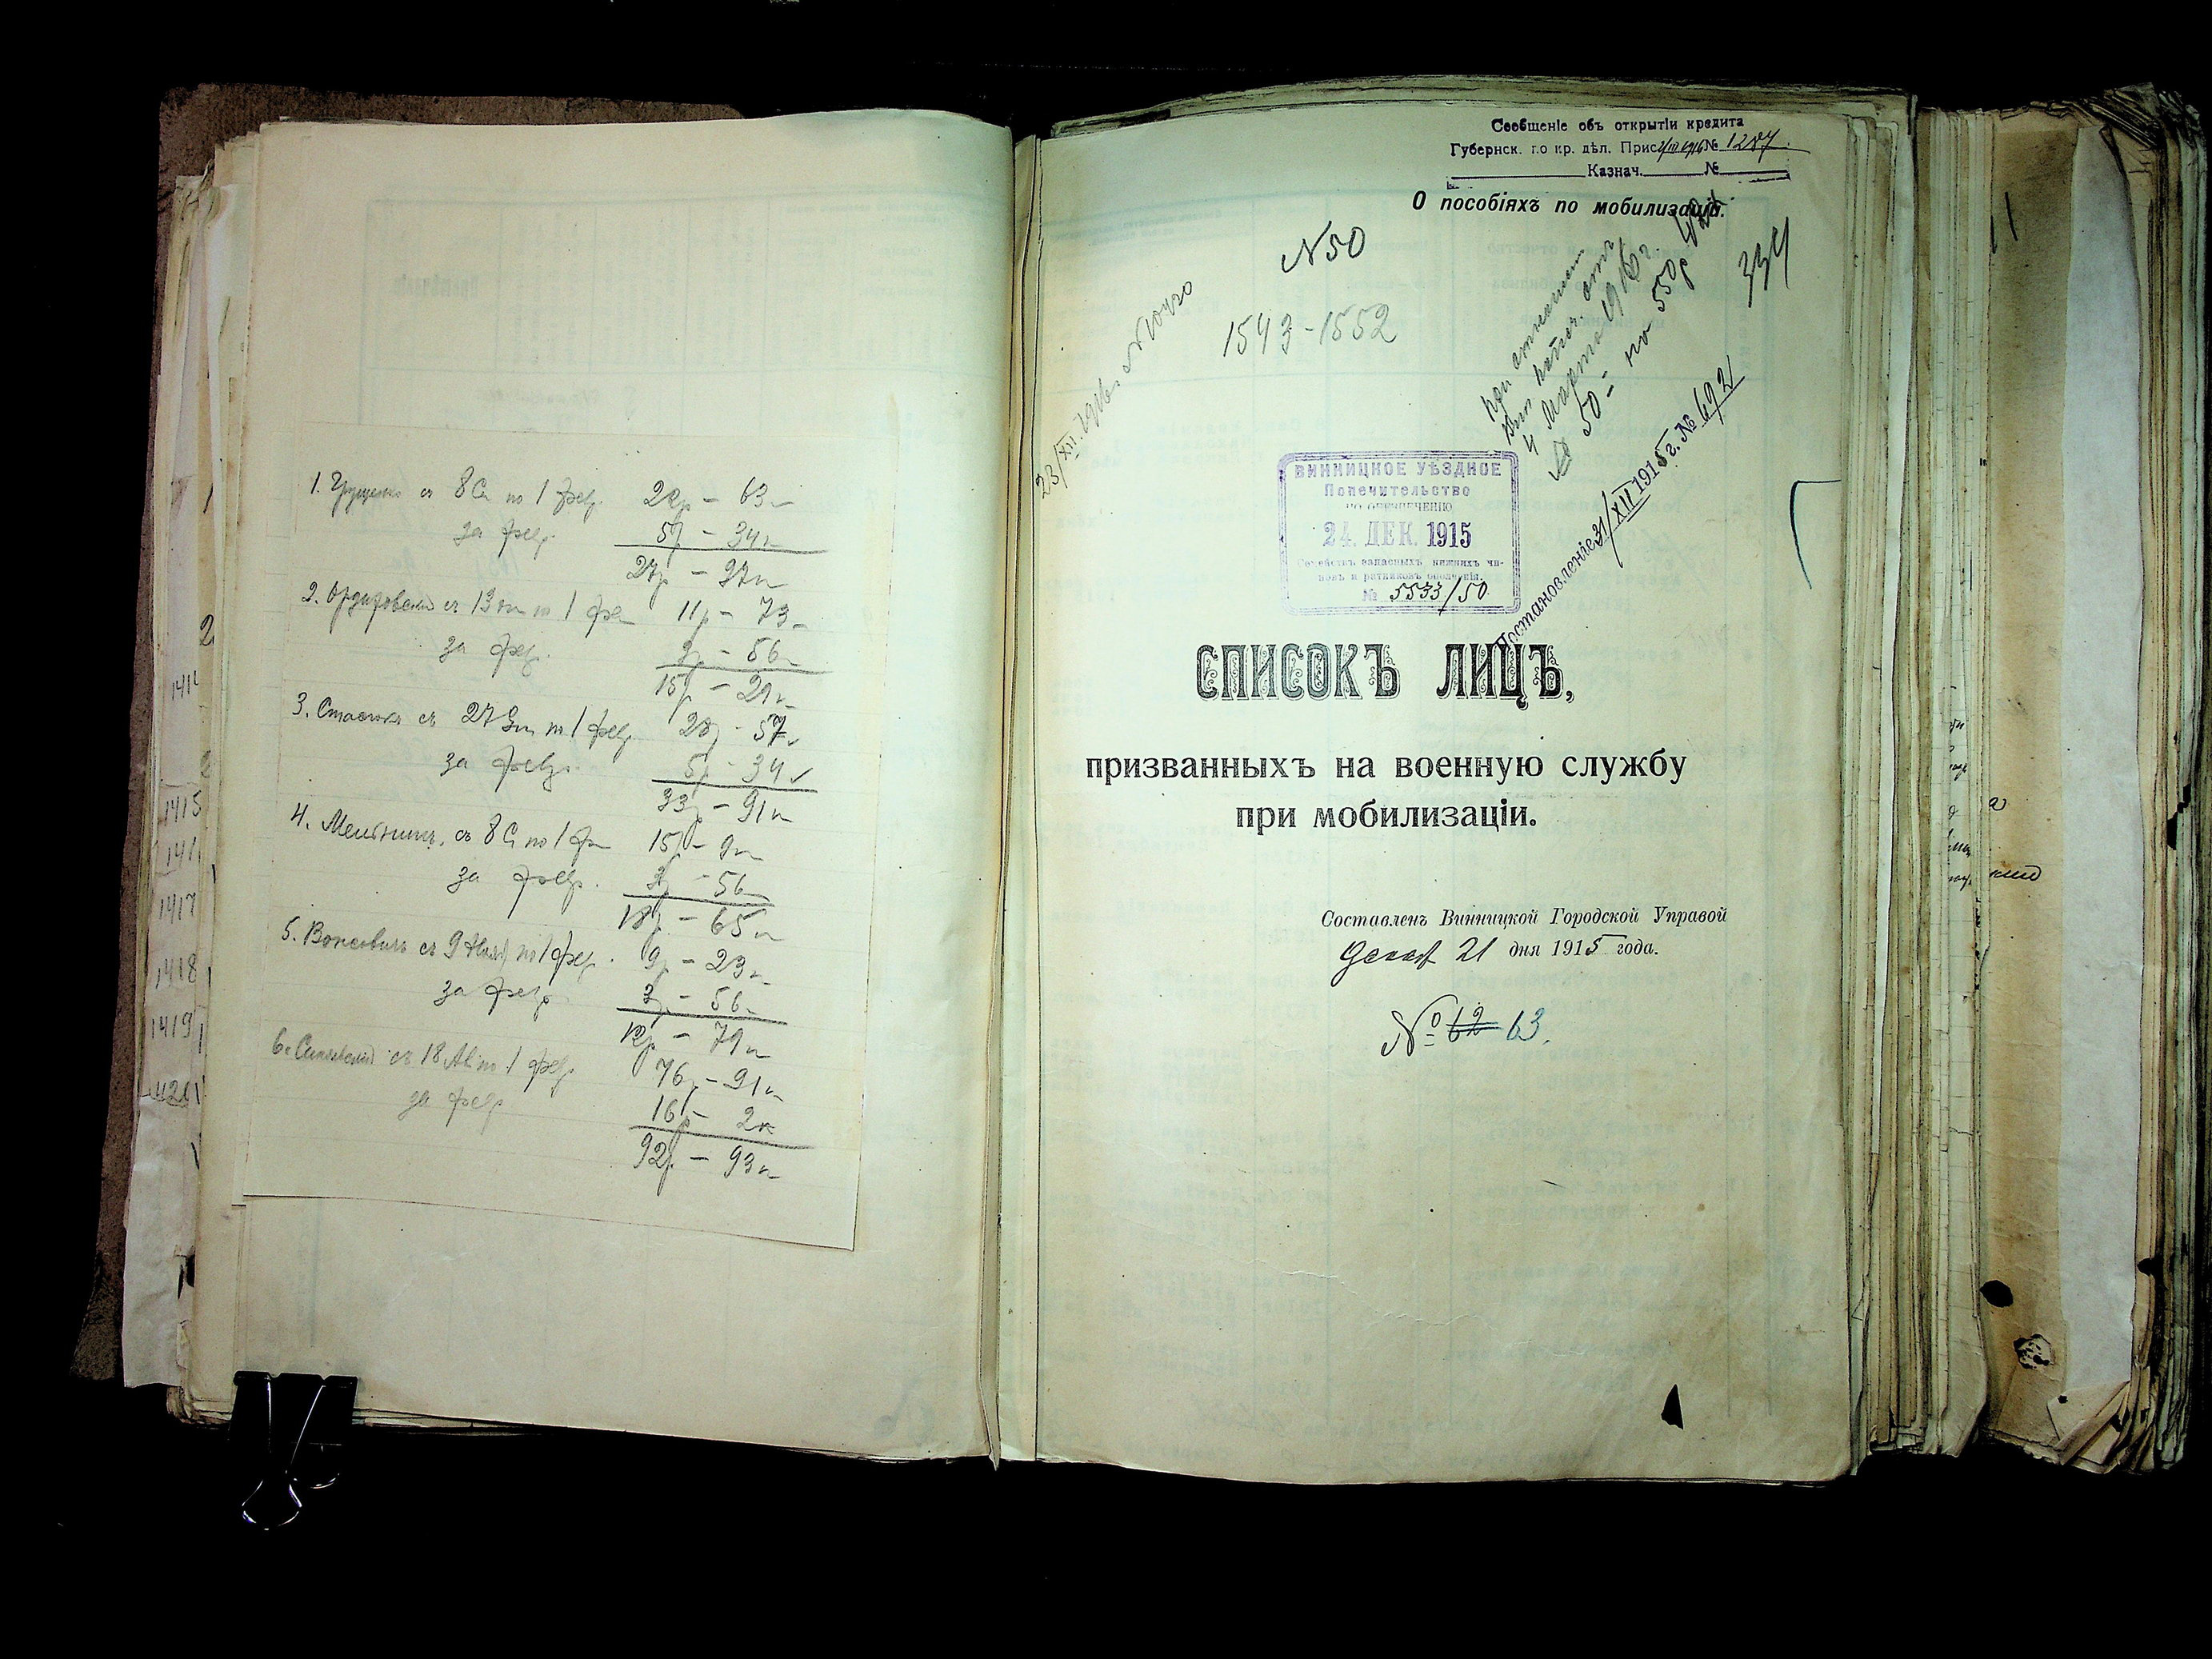 1. Грищенко съ 8 Сн по 1 фев. 22р – 63к
за февр. 5р – 34к
27р – 97к
2. съ 13 по 1 фев 11р – 73к
за февр. 3р – 56к
15р – 29к
3. Стасюкъ съ 27 по 1 февр. 28р – 57к
за февр. 5р – 34к
33р – 91к
4. Мельникъ съ 8 Сн по 1 фев 15р – 9к
за февр. 3р – 56к
18р – 65к
5. съ 9 Нояб по 1 февр. 9р – 23к
за февр. 3р – 56к
12р – 79к
6. съ 18 Авг по 1 февр. 76р – 91к
за февр 16р – 2к
92р – 93к
1415
1417
1418
1419
Сообщеніе объ открытіи кредита
Губернск. по кр. дѣл. Прис. 1916 № 1287
Казнач. №
О пособіяхъ по мобилизаціи.
334
N 50
1543-1552
23/XII 1916 г. N 10420
при отношеніи
4 Марта 1916 г.
№ 50 – на 550р
Постановленіе 31/XII 1915 г. № 692
ВИННИЦКОЕ УѢЗДНОЕ
Попечительство
ПО ОБЕЗПЕЧЕНІЮ
24. ДЕК. 1915
Семействъ запасныхъ нижнихъ чи-
новъ и ратниковъ ополченія.
№ 5533/50
СПИСОКЪ ЛИЦЪ,
призванныхъ на военную службу
при мобилизаціи.
Составленъ Винницкой Городской Управой
Декаб 21 дня 1915 года.
№ 62 63.